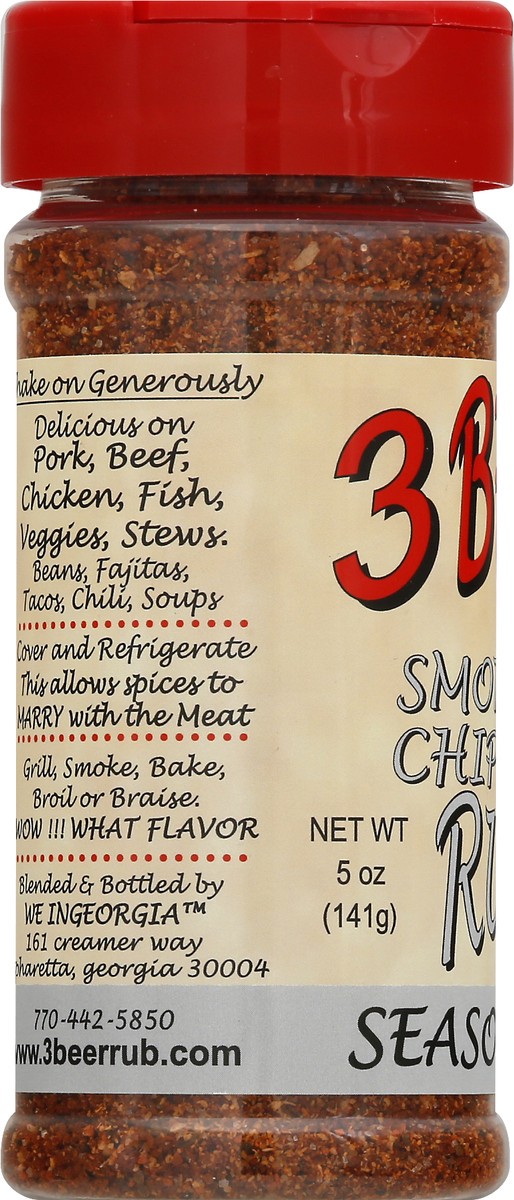 hake on Generously
Delicious on
Pork, Beef,
Chicken, Fish,
Veggies, Stews.
Beans, Fajitas,
Tacos, Chili, Soups
Cover and Refrigerate
This allows spices to
MARRY with the Meat
Grill, Smoke, Bake,
Broil or Braise.
WOW !!! WHAT FLAVOR
Blended & Bottled by
WE INGEORGIA™
161 creamer way
pharetta, georgia 30004
770-442-5850
www.3beerrub.com
3 B
SMO
CHIP
RU
NET WT
5 oz
(141g)
SEASO